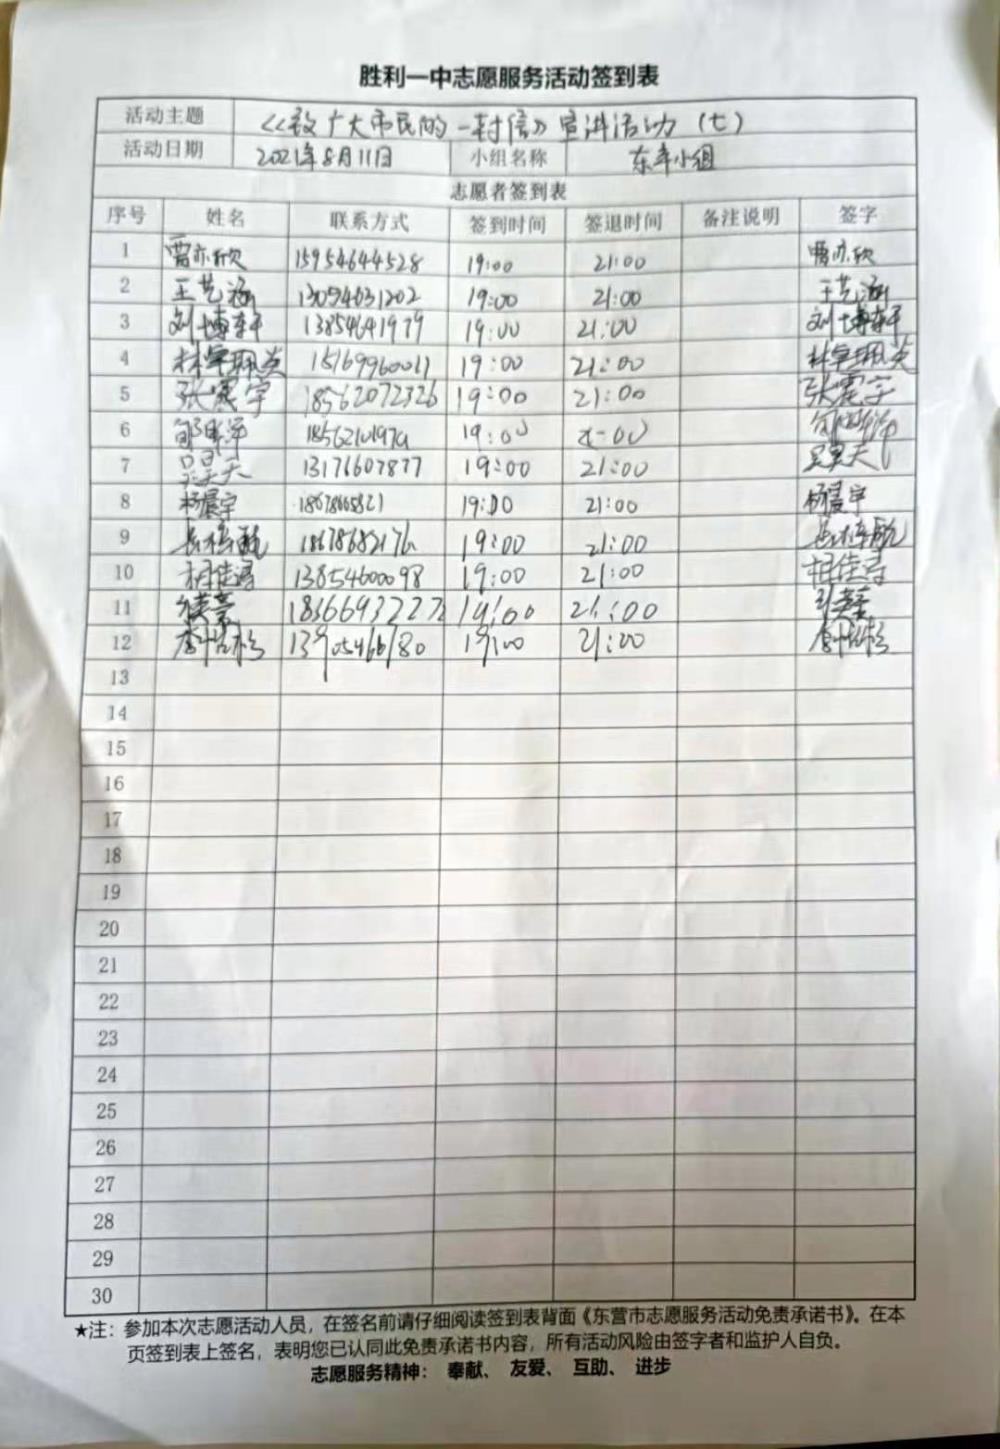 胜利一中志愿服务活动签到表
活动主题 《致广大市民的一封信》宣讲活动（七）
活动日期 2021年8月11日 小组名称 东辛小组
志愿者签到表
序号 姓名 联系方式 签到时间 签退时间 备注说明 签字
1 亦欣 15954644528 19:00 21:00 亦欣
2 王艺涵 13054631202 19:00 21:00 王艺涵
3 刘博轩 13854641979 19:00 21:00 刘博轩
4 林宇珮英 15169960011 19:00 21:00 林宇珮英
5 张震宇 18562072326 19:00 21:00 张震宇
6 19:00
7 吴昊天 13176607877 19:00 21:00 吴昊天
8 杨晨宇 18678665821 19:00 21:00 杨晨宇
9 19:00 21:00
10 13854600098 19:00 21:00
11 19:00 21:00
12 19:00 21:00
13
14
15
16
17
18
19
20
21
22
23
24
25
26
27
28
29
30
★注：参加本次志愿活动人员，在签名前请仔细阅读签到表背面《东营市志愿服务活动免责承诺书》。在本
页签到表上签名，表明您已认同此免责承诺书内容，所有活动风险由签字者和监护人自负。
志愿服务精神： 奉献、 友爱、 互助、 进步